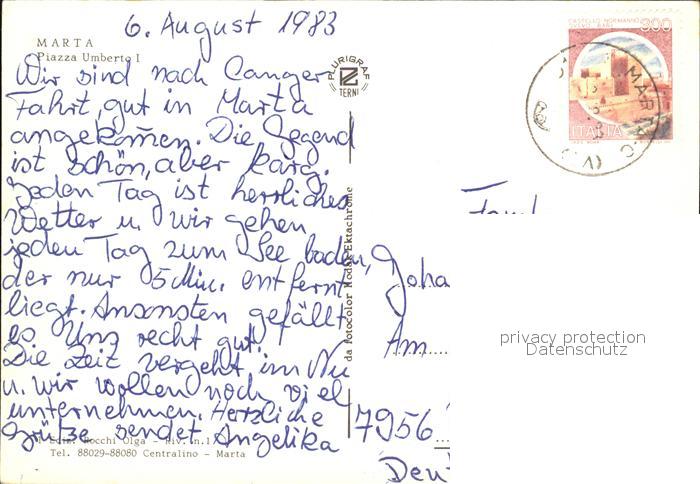 6. August 1983
MARTA
Piazza Umberto I
Wir sind nach langer
Fahrt, gut in Marta
angekommen. Die Gegend
ist schön, aber karg.
Jeden Tag ist herrliches
Wetter u. wir gehen
jeden Tag zum See baden,
der nur 5 Min. entfernt
liegt. Ansonsten gefällt
es Uns recht gut.
Die Zeit vergeht im Nu
u. wir wollen noch viel
unternehmen. Herzliche
Grüße sendet Angelika
Ediz. Rocchi Olga - Riv. n.1
Tel. 88029-88080 Centralino - Marta
PLURIGRAF
TERNI
da fotocolor Kodak Ektachrome
CASTELLO NORMANNO
SVEVO BARI
300
ITALIA
MARTA
(VT)
Fam
Joha
Am
7956
Deu
privacy protection
Datenschutz